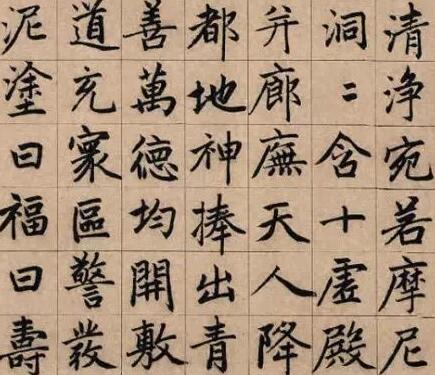 清淨宛若摩尼
洞〻含十虚殿
并廊廡天人降
都地神捧出青
善萬德均開敷
道充寰區警發
泥塗曰福曰壽